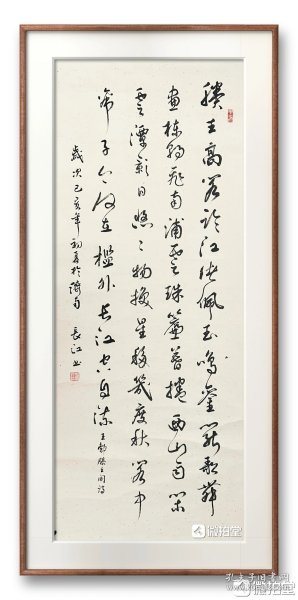 滕王高阁临江渚佩玉鸣鸾罢歌舞
画栋朝飞南浦云珠帘暮捲西山雨闲
云潭影日悠々物换星移几度秋阁中
帝子今何在槛外长江空自流
王勃滕王阁诗
岁次己亥年初夏於
长江书
微拍堂
孔夫子旧书网
微拍堂